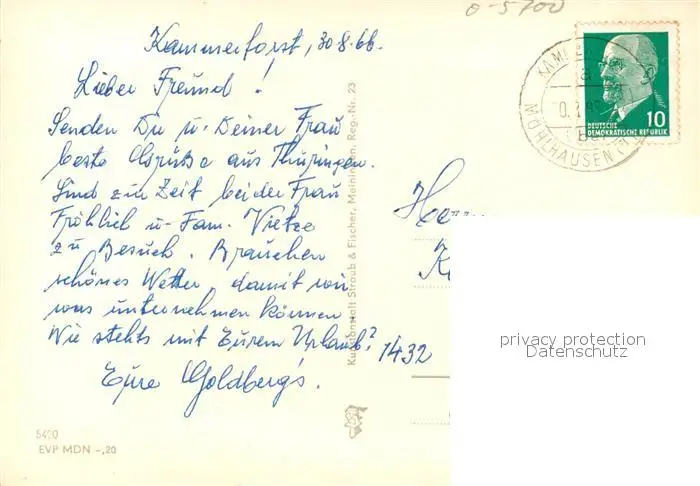 0-5700
Kammerforst, 30.8.66.
Lieber Freund!
Senden Du u. Deiner Frau
beste Grüße aus Thüringen.
Sind zur Zeit bei der Frau
Fröhlich u. Fam. Vietze
zu Besuch. Brauchen
schönes Wetter, damit wir
was unternehmen können.
Wie stehts mit Eurem Urlaub?
Eure Goldberg's.
1432
5420
EVP MDN -,20
Kunstanstalt Straub & Fischer, Meiningen, Reg.-Nr. 23
10
DEUTSCHE
DEMOKRATISCHE REPUBLIK
MÜHLHAUSEN
privacy protection
Datenschutz